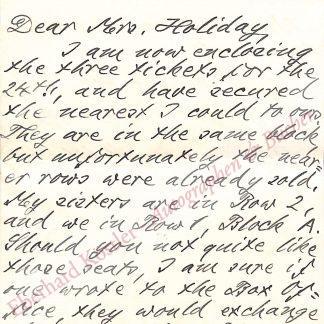 Dear Mrs. Holiday
I am now enclosing
the three tickets, for the
24th, and have secured
the nearest I could to ours
They are in the same block
but unfortunately the near-
er rows were already sold.
My sisters are in Row 2,
and we in Row 1, Block A.
Should you not quite like
those seats, I am sure if
one wrote to the Box Of-
fice, they would exchange
Eberhard Köstler Autographen &